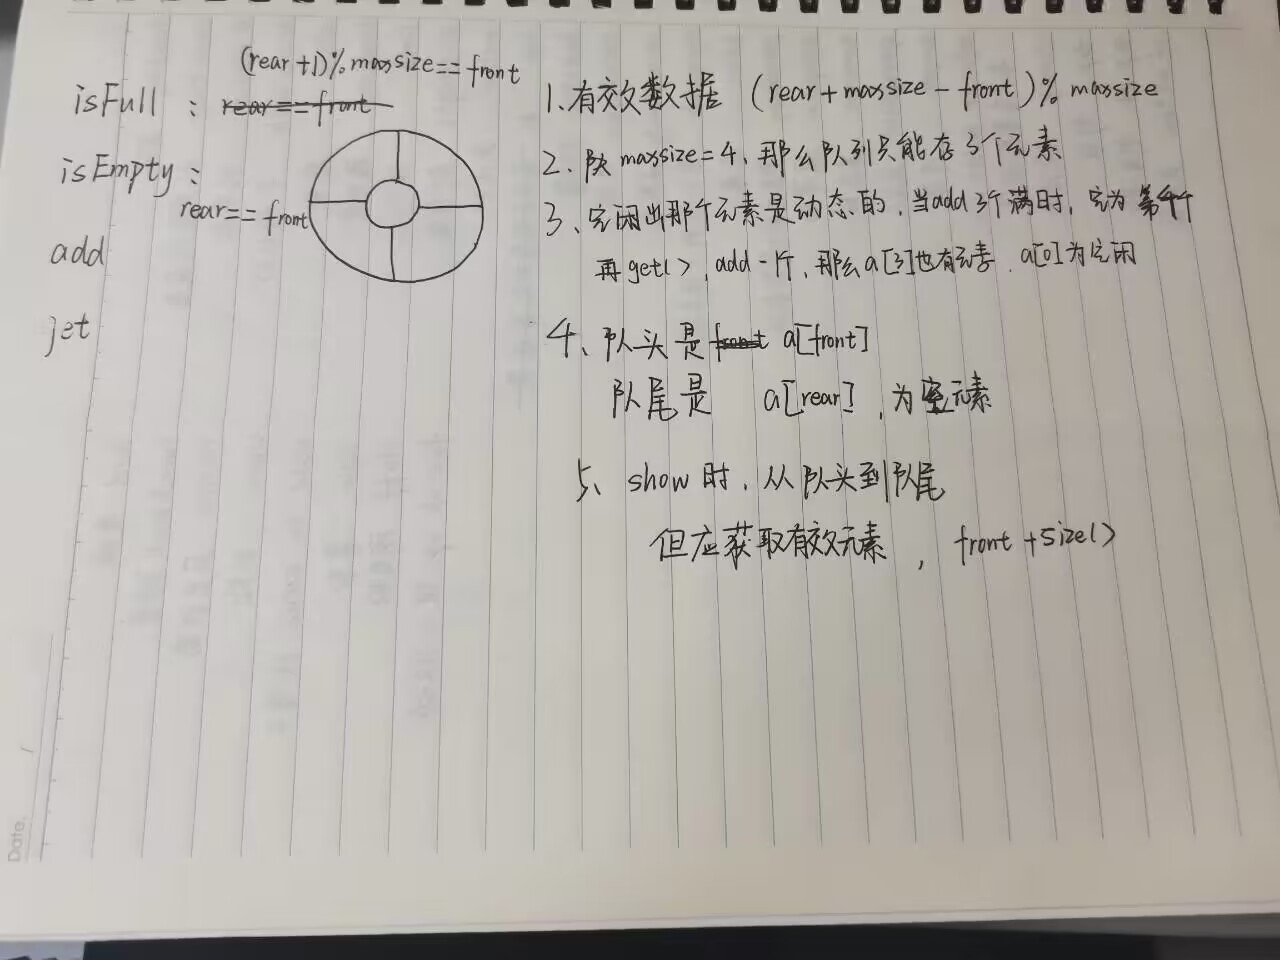 (rear+1)%maxsize==front
isFull : rear==front
isEmpty :
rear==front
add
get
1、有效数据 (rear+maxsize-front)%maxsize
2、maxsize=4、那么队列只能存3个元素
3、空闲出那个元素是动态的，当add 3个满时，空为第4个
再get()，add一个，那么a[3]也有元素，a[0]为空闲
4、队头是front a[front]
队尾是 a[rear]，为空元素
5、show时，从队头到队尾
但应获取有效元素，front+size()
Date. /